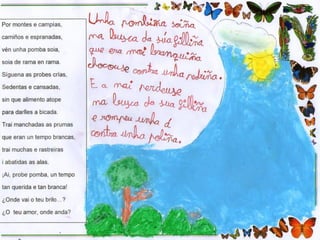 Por montes e campías,
camiños e espranadas,
vén unha pomba soia,
soia de rama en rama.
Síguena as probes crías,
Sedentas e cansadas,
sin que alimento atope
para darlles a bicada.
Trai manchadas as prumas
que eran un tempo brancas,
trai muchas e rastreiras
i abatidas as alas.
¡Ai, probe pomba, un tempo
tan querida e tan branca!
¿Onde vai o teu brilo...?
¿O teu amor, onde anda?
Unha pombiña soiña
na busca da súa filliña
que era moi branquiña
chocouse contra unha pedriña.
E a nai perdeuse
na busca da súa filliña
e rompeu unha á
contra unha pedriña.